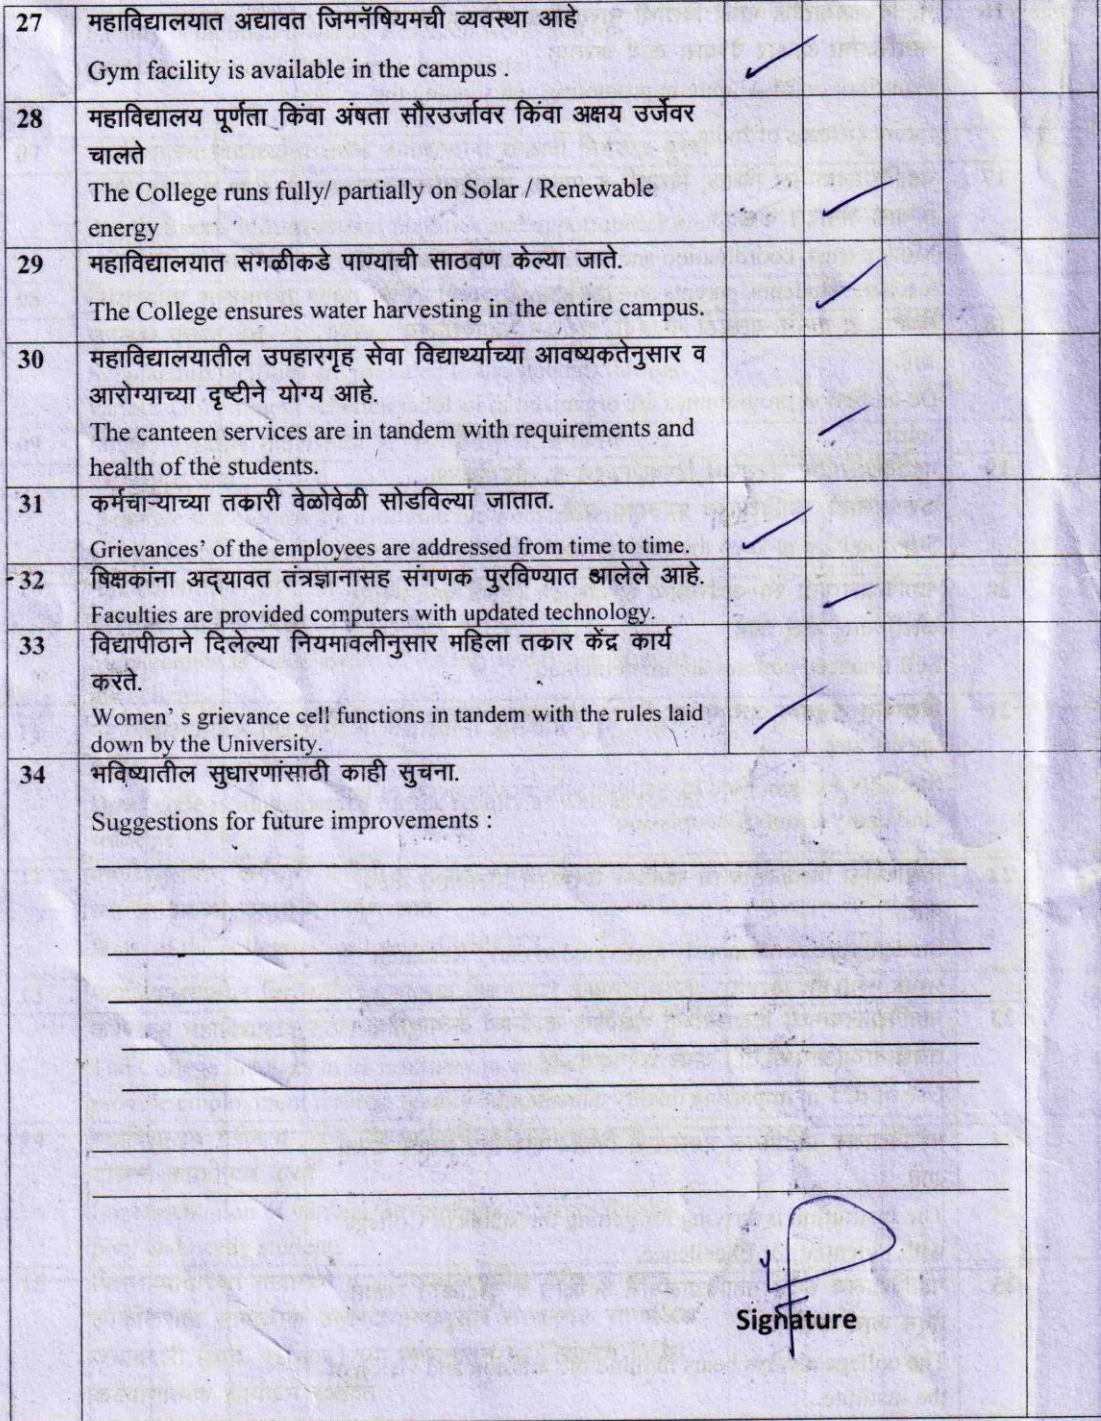 27 महाविद्यालयात अद्यावत जिमनॅषियमची व्यवस्था आहे
Gym facility is available in the campus .
28 महाविद्यालय पूर्णता किंवा अंषता सौरउर्जावर किंवा अक्षय उर्जेवर
चालते
The College runs fully/ partially on Solar / Renewable
energy
29 महाविद्यालयात सगळीकडे पाण्याची साठवण केल्या जाते.
The College ensures water harvesting in the entire campus.
30 महाविद्यालयातील उपहारगृह सेवा विद्यार्थ्याच्या आवष्यकतेनुसार व
आरोग्याच्या दृष्टीने योग्य आहे.
The canteen services are in tandem with requirements and
health of the students.
31 कर्मचाऱ्याच्या तकारी वेळोवेळी सोडविल्या जातात.
Grievances’ of the employees are addressed from time to time.
32 षिक्षकांना अद्‌यावत तंत्रज्ञानासह संगणक पुरविण्यात आलेले आहे.
Faculties are provided computers with updated technology.
33 विद्यापीठाने दिलेल्या नियमावलीनुसार महिला तकार केंद्र कार्य
करते.
Women’ s grievance cell functions in tandem with the rules laid
down by the University.
34 भविष्यातील सुधारणांसाठी काही सुचना.
Suggestions for future improvements :
Signature